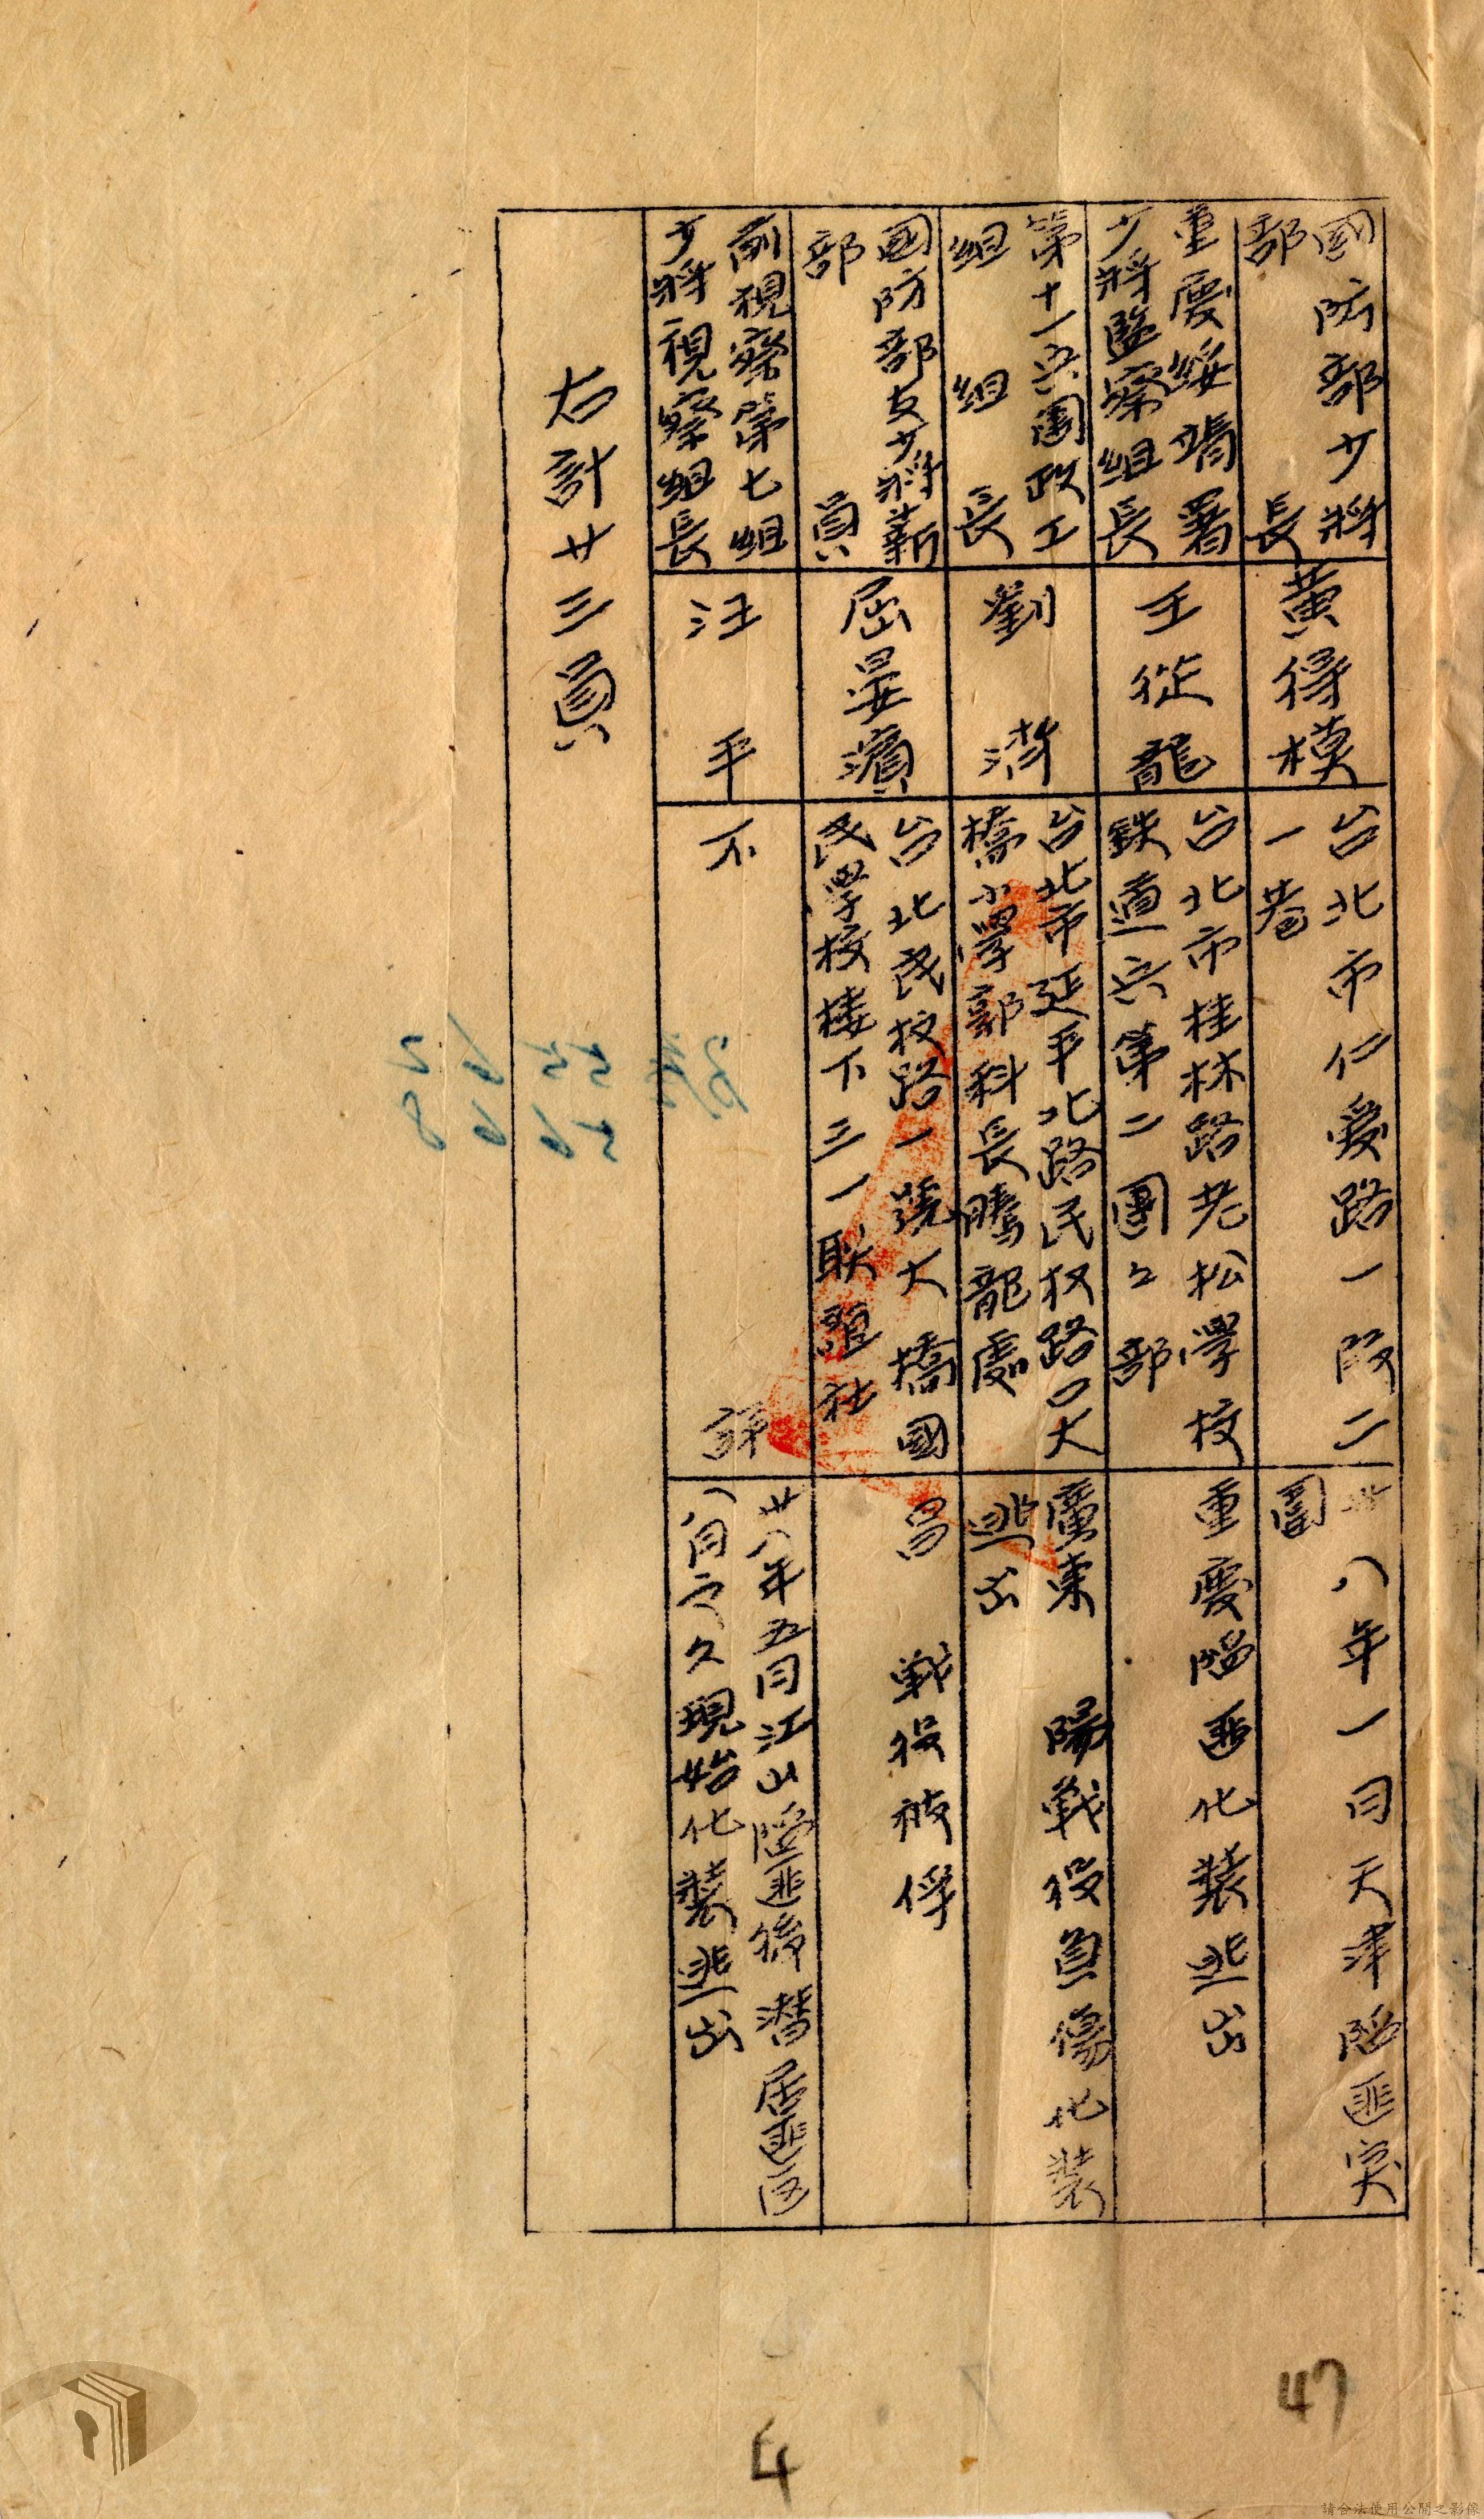 國防部少將
部長
黃得模
台北市仁愛路一段二
一巷
卅八年一月天津陷匪突
圍
重慶綏靖署
少將監察組長
王從龍
台北市桂林路老松學校
鉄道兵第二團々部
重慶陷匪化裝逃出
第十一兵團政工
組組長
劉
台北市延平北路民权路口大
橋小學郭科長騰龍處
廣東 陽戰役負傷化裝
逃出
國防部支少將薪
部員
屈晏濱
台北民权路一號大橋國
民學校楼下三一联誼社
昌 戰役被俘
前視察第七組
少將視察組長
汪平
不詳
卅八年五月江山陷匪後潛居匪区
八月之久現始化裝逃出
右計廿三員
47
4
請合法使用公開之影像